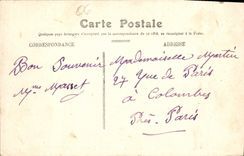 Carte Postale
Quelques pays étrangers n'acceptent pas la correspondance de ce côté, se renseigner à la Poste.
CORRESPONDANCE
ADRESSE
Bon Souvenir
Mme Masset
Mademoiselle Martin
27 Rue de Paris
à Colombes
Près Paris